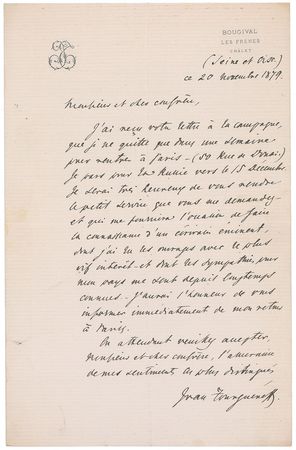 BOUGIVAL
LES FRENES
CHALET
(Seine et Oise.)
ce 20 novembre 1879.
Monsieur et cher confrère,
J'ai reçu votre lettre à la campagne,
que je ne quitte que dans une semaine
pour rentrer à Paris - (50 Rue de Douai.)
Je pars pour la Russie vers le 15 Décembre.
Je serai très heureux de vous rendre
le petit service que vous me demandez -
et qui me fournira l'occasion de faire
la connaissance d'un écrivain éminent,
dont j'ai lu les ouvrages avec le plus
vif intérêt - et dont les sympathies pour
mon pays me sont depuis longtemps
connues - J'aurai l'honneur de vous
informer immédiatement de mon retour
à Paris.
En attendant veuillez accepter,
Monsieur et cher confrère, l'assurance
de mes sentiments les plus distingués
Ivan Tourguéneff